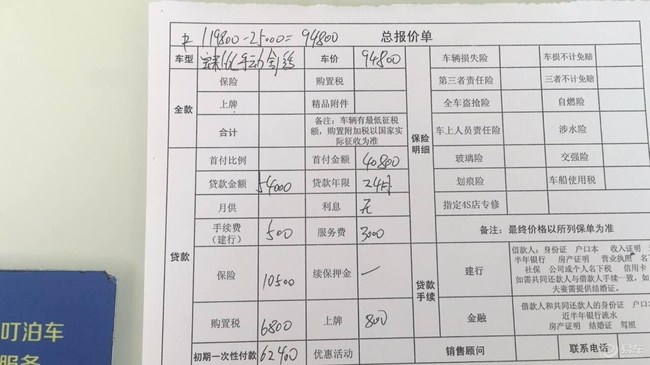 119800-25000=94800 总报价单
车型 手动 车价 94800 车辆损失险 车损不计免赔
全款 保险 购置税 第三者责任险 三者不计免赔
上牌 精品附件 全车盗抢险 自燃险
合计 备注:车辆有最低征税额,购置附加税以国家实际征收为准 保险明细 车上人员责任险 涉水险
首付比例 首付金额 40800 玻璃险 交强险
贷款金额 54000 贷款年限 24月 划痕险 车船使用税
月供 利息 无 指定4S店专修
贷款 手续费(建行) 500 服务费 3000 备注:最终价格以所列保单为准
保险 10500 续保押金 — 贷款手续 建行 借款人:身份证 户口本 收入证明
半年银行 房产证明 营业执照 名下
社保 公司或个人名下税 信用卡
如需共同还款人与借款人手续一致,如
夫妻需提供结婚证。
购置税 6800 上牌 800 金融 借款人和共同还款人的身份证 户口
近半年银行流水
房产证明 结婚证 驾照
初期一次性付款 62400 优惠活动 销售顾问 联系电话
叮泊车
服务
易车